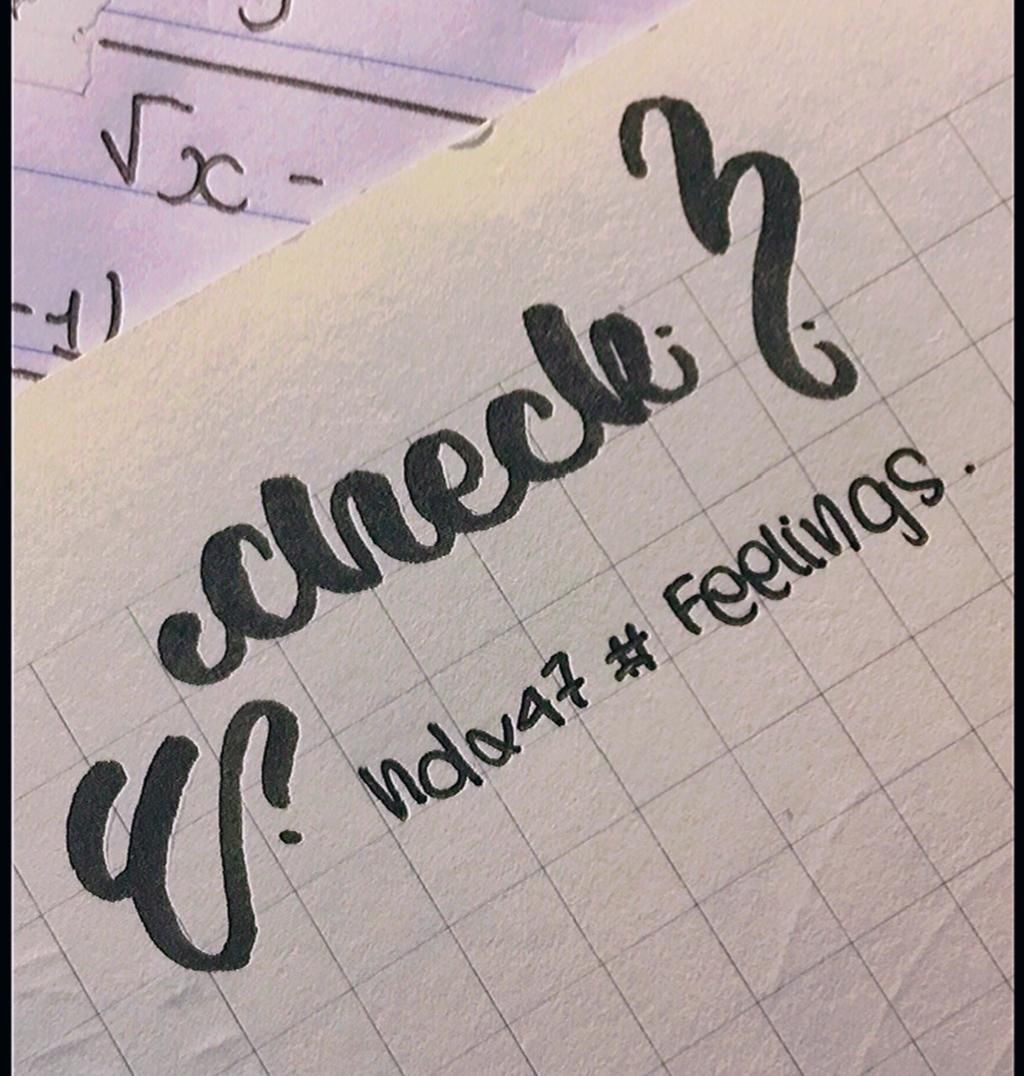 √x -
-1)
check
ndx47 # Feelings.